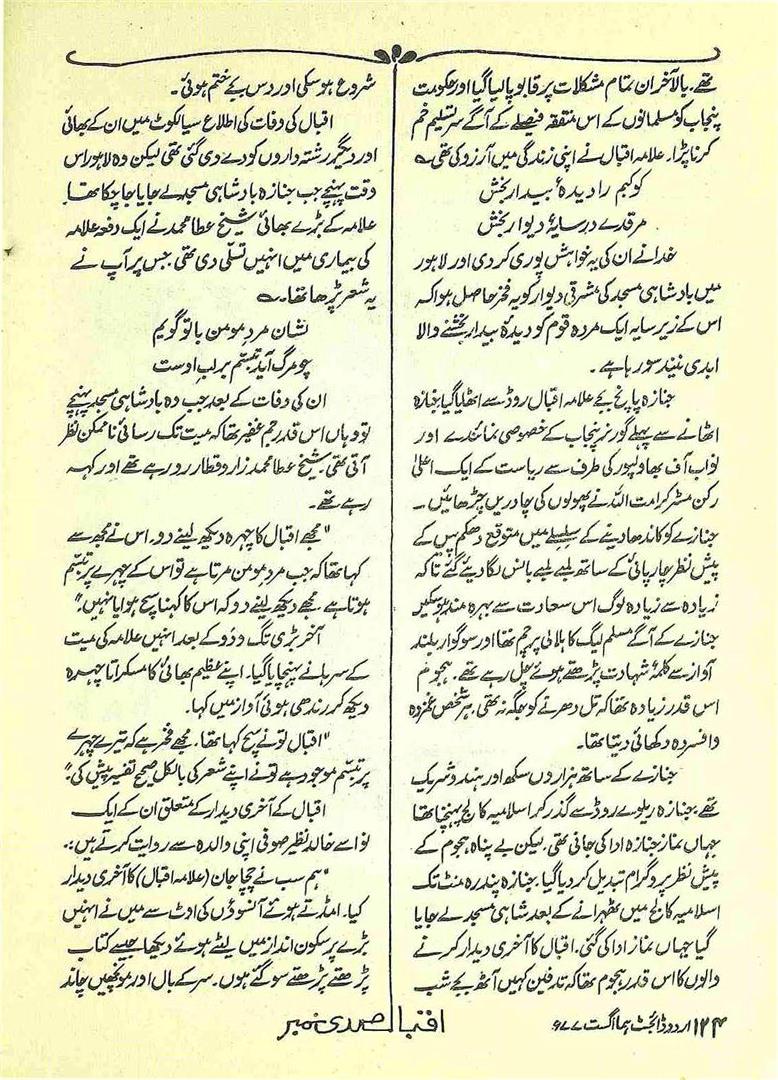 تھے۔ بالآخر ان تمام مشکلات پر قابو پا لیا گیا اور حکومت
پنجاب کو مسلمانوں کے اس متفقہ فیصلے کے آگے سر تسلیم خم
کرنا پڑا۔ علامہ اقبال نے اپنی زندگی میں آرزو کی تھی ؎
کوکبم را دیدۂ بیدار بخش
مرقدے در سایۂ دیوار بخش
خدا نے ان کی یہ خواہش پوری کر دی اور لاہور
میں بادشاہی مسجد کی مشرقی دیوار کو یہ فخر حاصل ہوا کہ
اس کے زیر سایہ ایک مردہ قوم کو دیدۂ بیدار بخشنے والا
ابدی نیند سو رہا ہے۔
جنازہ پانچ بجے علامہ اقبال روڈ سے اٹھایا گیا۔ جنازہ
اٹھانے سے پہلے گورنر پنجاب کے خصوصی نمائندے اور
نواب آف بھاولپور کی طرف سے ریاست کے ایک اعلیٰ
رکن مسٹر کرامت اللہ نے پھولوں کی چادریں چڑھائیں۔
جنازے کو کاندھا دینے کے سلسلے میں متوقع دھکم پیل کے
پیش نظر چارپائی کے ساتھ لمبے لمبے بانس لگا دیئے گئے تاکہ
زیادہ سے زیادہ لوگ اس سعادت سے بہرہ مند ہو سکیں
جنازے کے آگے مسلم لیگ کا ہلالی پرچم تھا اور سوگوار بلند
آواز سے کلمۂ شہادت پڑھتے ہوئے چل رہے تھے۔ ہجوم
اس قدر زیادہ تھا کہ تل دھرنے کو جگہ نہ تھی، ہر شخص غمزدہ
و افسردہ دکھائی دیتا تھا۔
جنازے کے ساتھ ہزاروں سکھ اور ہندو شریک
تھے۔ جنازہ ریلوے روڈ سے گذر کر اسلامیہ کالج پہنچنا تھا
جہاں نماز جنازہ ادا کی جانی تھی۔ لیکن بے پناہ ہجوم کے
پیش نظر پروگرام تبدیل کر دیا گیا۔ جنازہ پندرہ منٹ تک
اسلامیہ کالج میں ٹھہرانے کے بعد شاہی مسجد لے جایا
گیا جہاں نماز ادا کی گئی۔ اقبال کا آخری دیدار کرنے
والوں کا اس قدر ہجوم تھا کہ تدفین کہیں آٹھ بجے شب
شروع ہو سکی اور دس بجے ختم ہوئی۔
اقبال کی وفات کی اطلاع سیالکوٹ میں ان کے بھائی
اور دیگر رشتہ داروں کو دے دی گئی تھی لیکن وہ لاہور اس
وقت پہنچے جب جنازہ بادشاہی مسجد لے جایا جا چکا تھا۔
علامہ کے بڑے بھائی شیخ عطا محمد نے ایک دفعہ علامہ
کی بیماری میں انہیں تسلی دی تھی جس پر آپ نے
یہ شعر پڑھا تھا۔ ؎
نشان مرد مومن با تو گویم
چو مرگ آید تبسم بر لب اوست
ان کی وفات کے بعد جب وہ بادشاہی مسجد پہنچے
تو وہاں اس قدر جم غفیر تھا کہ میت تک رسائی ناممکن نظر
آتی تھی۔ شیخ عطا محمد زار و قطار رو رہے تھے اور کہہ
رہے تھے۔
"مجھے اقبال کا چہرہ دیکھ لینے دو۔ اس نے مجھ سے
کہا تھا کہ جب مرد مومن مرتا ہے تو اس کے چہرے پر تبسم
ہوتا ہے۔ مجھے دیکھ لینے دو کہ اس کا کہنا سچ ہوا یا نہیں۔"
آخر بڑی تگ و دو کے بعد انہیں علامہ کی میت
کے سرہانے پہنچایا گیا۔ اپنے عظیم بھائی کا مسکراتا چہرہ
دیکھ کر رندھی ہوئی آواز میں کہا۔
"اقبال تو نے سچ کہا تھا۔ مجھے فخر ہے کہ تیرے چہرے
پر تبسم موجود ہے تو نے اپنے شعر کی بالکل صحیح تفسیر پیش کی۔"
اقبال کے آخری دیدار کے متعلق ان کے ایک
نواسے خالد نظیر صوفی اپنی والدہ سے روایت کرتے ہیں :۔
"ہم سب نے چچا جان (علامہ اقبال) کا آخری دیدار
کیا۔ امڈتے ہوئے آنسوؤں کی اوٹ سے میں نے انہیں
بڑے پرسکون انداز میں لیٹے ہوئے دیکھا جیسے کتاب
پڑھتے پڑھتے سو گئے ہوں۔ سر کے بال اور مونچھیں چاند
۱۲۴ اردو ڈائجسٹ ہما اگست ۷۷ء
اقبال صدی نمبر